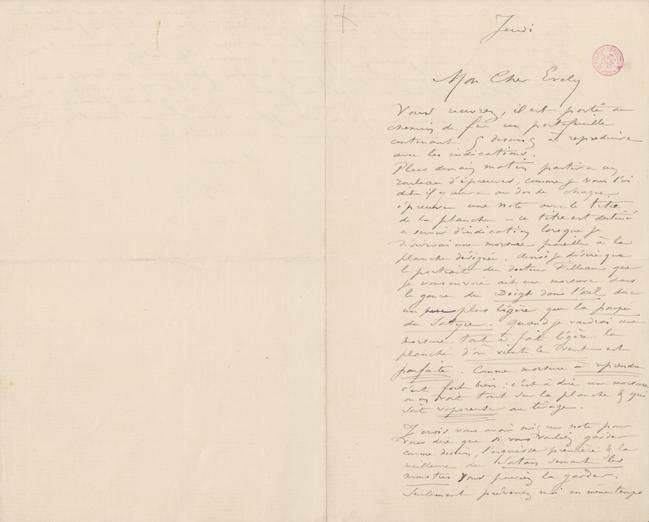 Jeudi
Mon Cher Evely
Vous recevrez, il est porté au
chemin de fer un portefeuille
contenant 5 dessins à reproduire
avec les indications.
Plus demain matin partira un
rouleau d'épreuves, comme je vous l'ai
dit il y aura au dos de chaque
épreuve une note avec le titre
de la planche — ce titre est destiné
a servir d'indication lorsque je
désirerai une morsure pareille à la
planche désignée. Ainsi je désire que
le portrait du docteur Filleau que
je vous envoie ait une morsure dans
le genre du Doigt dans l'œil donc
un plus légère que la
du Satyre. Quand je voudrai une
morsure tout à fait légère la
planche d'où vient le Vent est
parfaite. Comme morsure à répandre
c'est fort bien; c'est à dire une morsure
où on voit tout sur la planche & qui
soit vaporeuse au tirage.
Je crois vous avoir mis une note pour
vous dire que si vous vouliez garder
comme dessin, l'esquisse première & la
meilleure du Satan semant les
monstres vous pouviez la garder.
Seulement prévenez moi en même temps